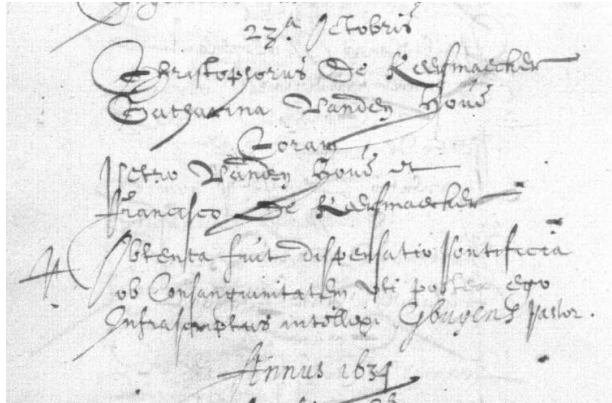 27ª Octobris
Christophorus De Keersmaecker
Catharina Vanden Hove
Coram
Petro Vanden Hove et
Francisco De Keersmaecker
Obtenta fuit dispensatio pontificia
ob Consanguinitatem, uti ego
Infrascriptus intellexi pastor.
Annus 1635